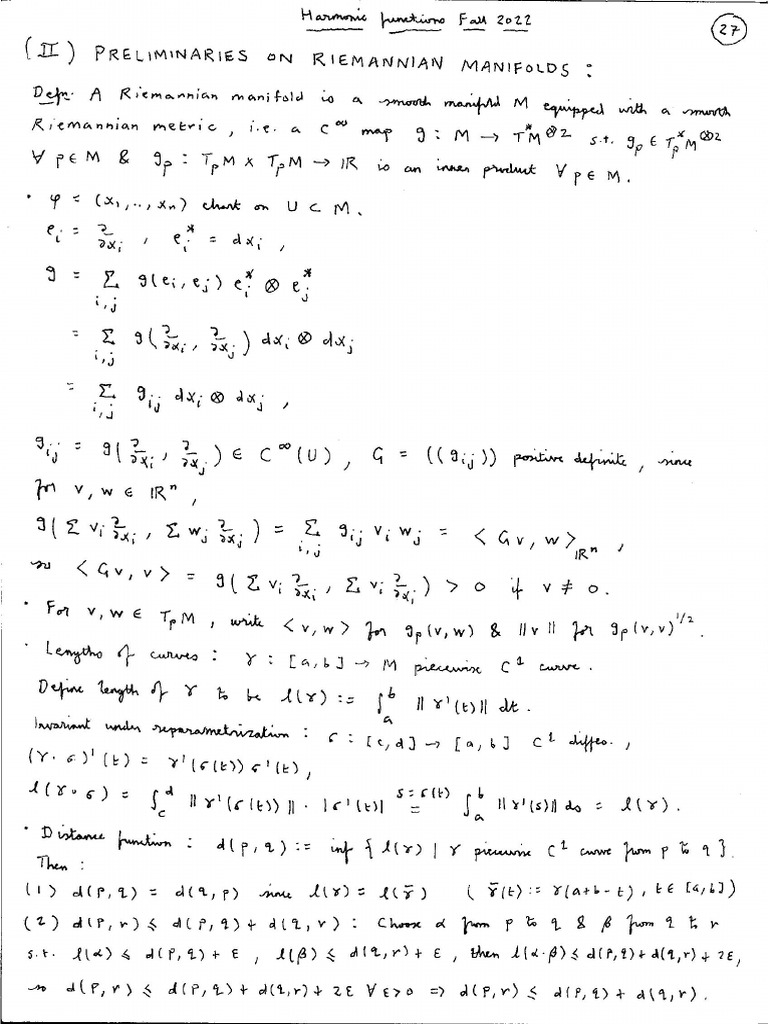 Harmonic functions Fall 2022
27
(II) PRELIMINARIES ON RIEMANNIAN MANIFOLDS :
Defn: A Riemannian manifold is a smooth manifold M equipped with a smooth
Riemannian metric, i.e. a C^∞ map g : M → T*M^⊗2 s.t. g_p ∈ T_p*M^⊗2
∀ p ∈ M & g_p : T_pM × T_pM → IR is an inner product ∀ p ∈ M.
· φ = (x_1, .., x_n) chart on U ⊂ M.
e_i = ∂/∂x_i , e_i^* = dx_i ,
g = Σ_{i,j} g(e_i, e_j) e_i^* ⊗ e_j^*
= Σ_{i,j} g(∂/∂x_i, ∂/∂x_j) dx_i ⊗ dx_j
= Σ_{i,j} g_ij dx_i ⊗ dx_j ,
g_ij = g(∂/∂x_i, ∂/∂x_j) ∈ C^∞(U), G = ((g_ij)) positive definite, since
for v, w ∈ IR^n,
g(Σ v_i ∂/∂x_i, Σ w_j ∂/∂x_j) = Σ_{i,j} g_ij v_i w_j = <Gv, w>_{IR^n} ,
so <Gv, v> = g(Σ v_i ∂/∂x_i, Σ v_i ∂/∂x_i) > 0 if v ≠ 0.
· For v, w ∈ T_pM, write <v, w> for g_p(v, w) & ||v|| for g_p(v, v)^{1/2}.
· Lengths of curves : γ : [a, b] → M piecewise C^1 curve.
Define length of γ to be l(γ) := ∫_a^b ||γ'(t)|| dt.
Invariant under reparametrization : σ : [c, d] → [a, b] C^1 diffeo.,
(γ∘σ)'(t) = γ'(σ(t)) σ'(t),
l(γ∘σ) = ∫_c^d ||γ'(σ(t))|| · |σ'(t)| s=σ(t) = ∫_a^b ||γ'(s)|| ds = l(γ).
· Distance function : d(p, q) := inf { l(γ) | γ piecewise C^1 curve from p to q }.
Then :
(1) d(p, q) = d(q, p) since l(γ) = l(γ̄) (γ̄(t) := γ(a+b-t), t ∈ [a, b])
(2) d(p, r) ≤ d(p, q) + d(q, r) : Choose α from p to q & β from q to r
s.t. l(α) ≤ d(p, q) + ε, l(β) ≤ d(q, r) + ε, then l(α·β) ≤ d(p, q) + d(q, r) + 2ε,
so d(p, r) ≤ d(p, q) + d(q, r) + 2ε ∀ ε>0 => d(p, r) ≤ d(p, q) + d(q, r).